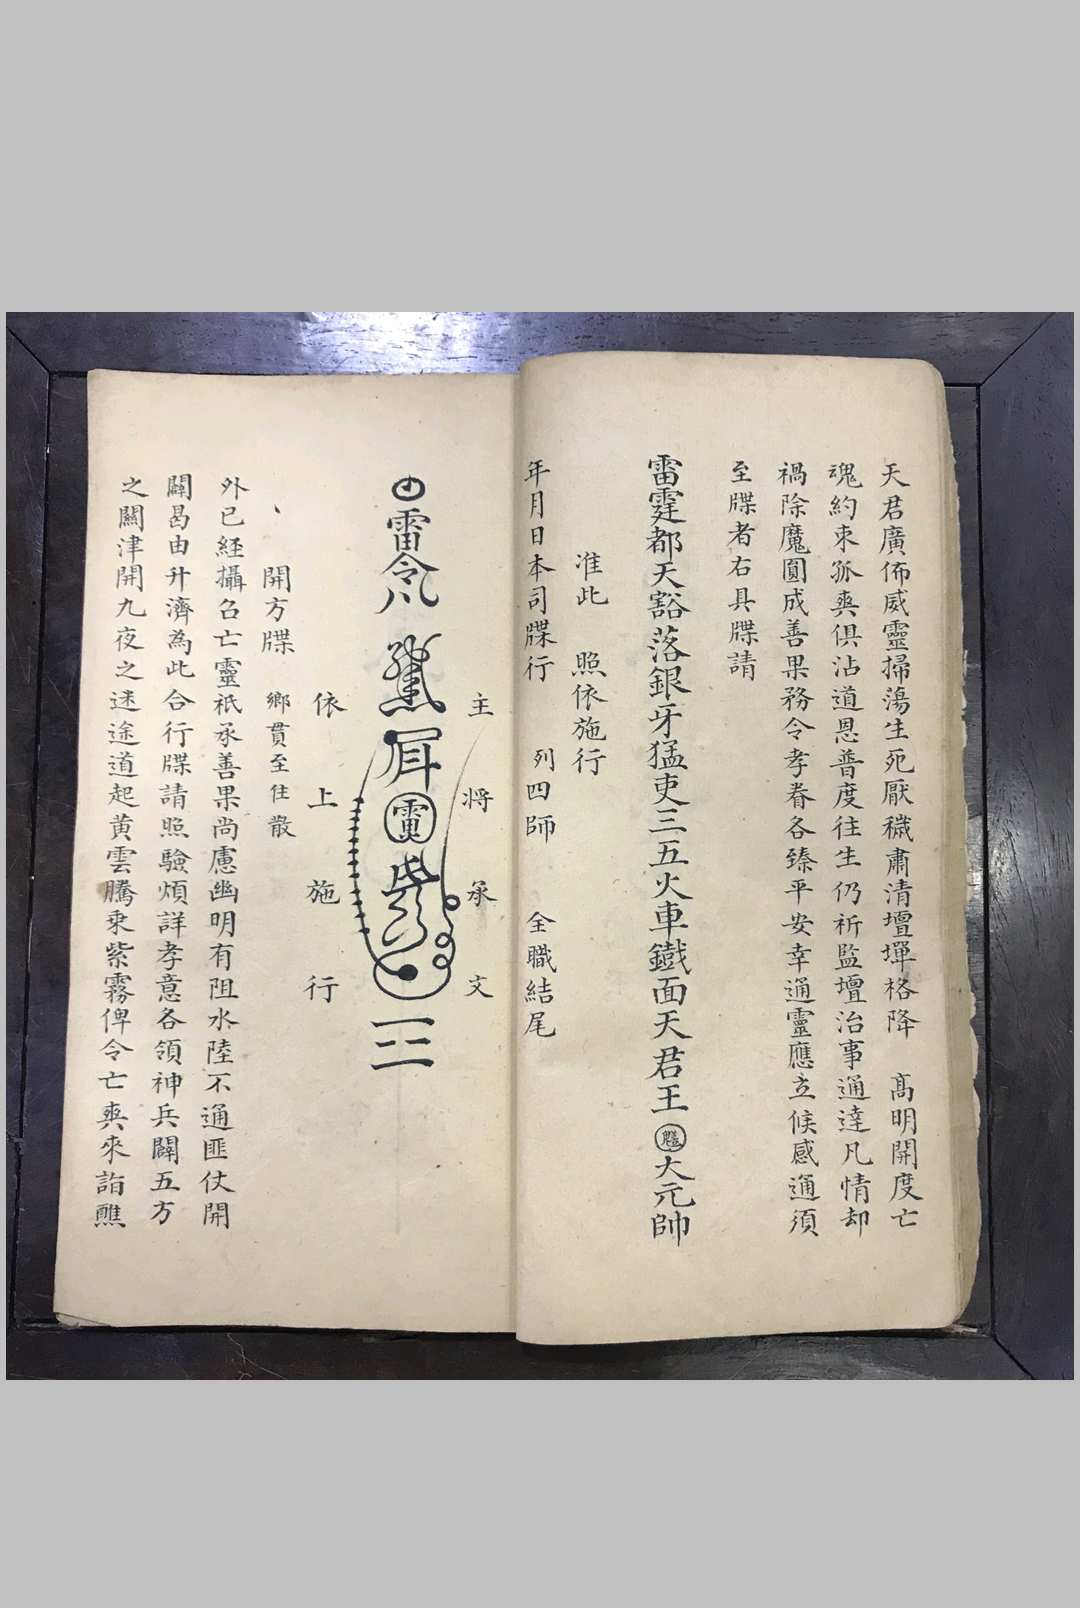 天君廣佈威靈掃蕩生死厭穢肅清壇墠格降 高明開度亡
魂約束孤爽俱沾道恩普度往生仍祈監壇治事通達凡情却
禍除魔圓成善果務令孝眷各臻平安幸通靈應立候感通須
至牒者右具牒請
雷霆都天豁落銀牙猛吏三五火車鐵面天君王 大元帥
准此 照依施行
年月日本司牒行 列四師 全職結尾
主將承文
雷令
雷
依上施行
開方牒 鄉貫至住散
外已經攝召亡靈祇承善果尚慮幽明有阻水陸不通匪仗開
闢曷由升濟為此合行牒請照驗煩詳孝意各領神兵闢五方
之關津開九夜之迷途道起黄雲騰乘紫霧俾令亡爽來詣醮